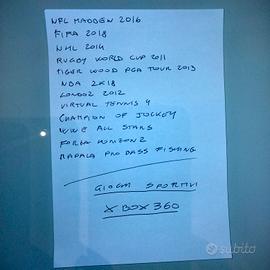 NFL MADDEN 2016
FIFA 2018
NHL 2014
RUGBY WORLD CUP 2011
TIGER WOOD PGA TOUR 2013
NBA 2K18
LONDON 2012
VIRTUAL TENNIS 4
CHAMPION OF JOCKEY
ALL STARS
FORZA HORIZON 2
RAPALA PRO BASS FISHING
GIOCHI SPORTIVI
XBOX 360
subito